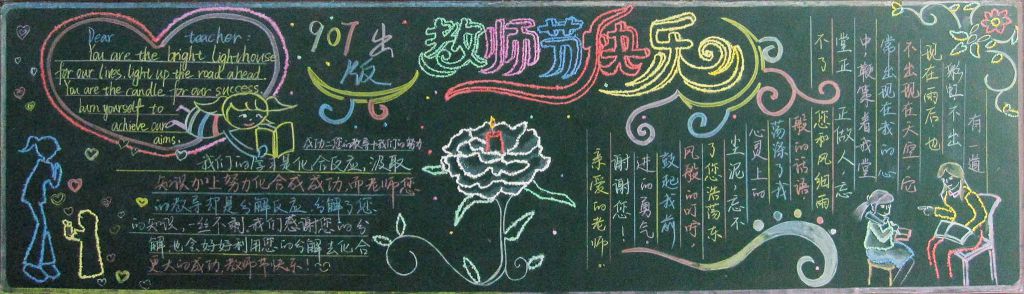 Dear teacher:
You are the bright lighthouse
for our lives, light up the road ahead.
You are the candle for our success,
burn yourself to
achieve our
aims.
907出版
教师节快乐
成功=您的教导+我们的努力
我们的学习是化合反应,汲取
知识加上努力化合成成功,而老师您
的教导却是分解反应,分解了您
的知识,一丝不剩,我们感谢您的分
解,也会好好利用您的分解去化合
更大的成功.教师节快乐!
有一道
彩虹不出
现在雨后,也
不出现在天空,它
常出现在我的心
中,鞭策着我堂
堂正正做人,忘
不了您和风细雨
般的话语
荡涤了我
心灵上的
尘泥,忘不
了您浩荡东
风般的叮咛,
鼓起我前
进的勇气
谢谢您!
亲爱的老师.